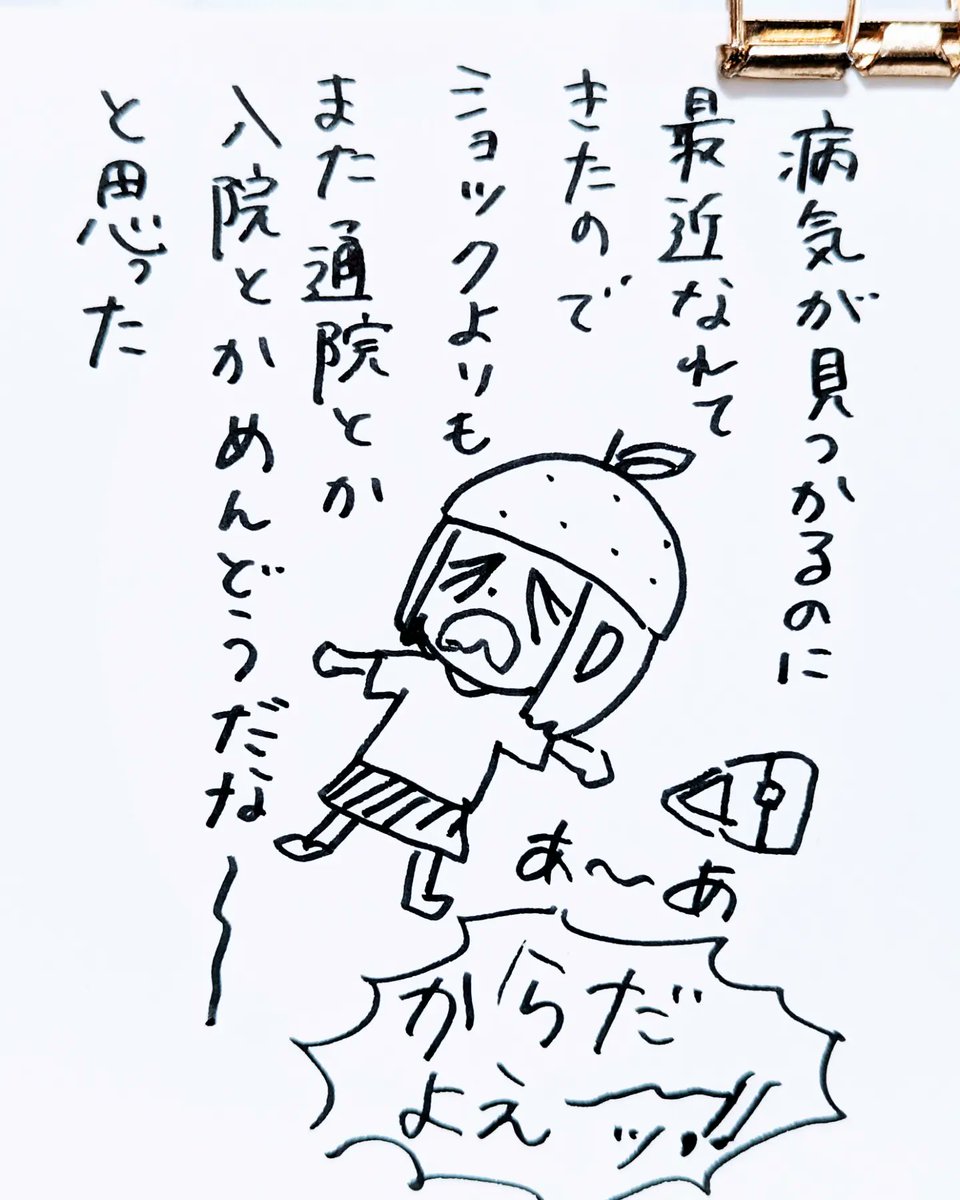 病気が見つかるのに
最近なれて
きたので
ショックよりも
また通院とか
入院とかめんどうだな〜
と思った
あ〜あ
からだ
よえ〜ッ!!